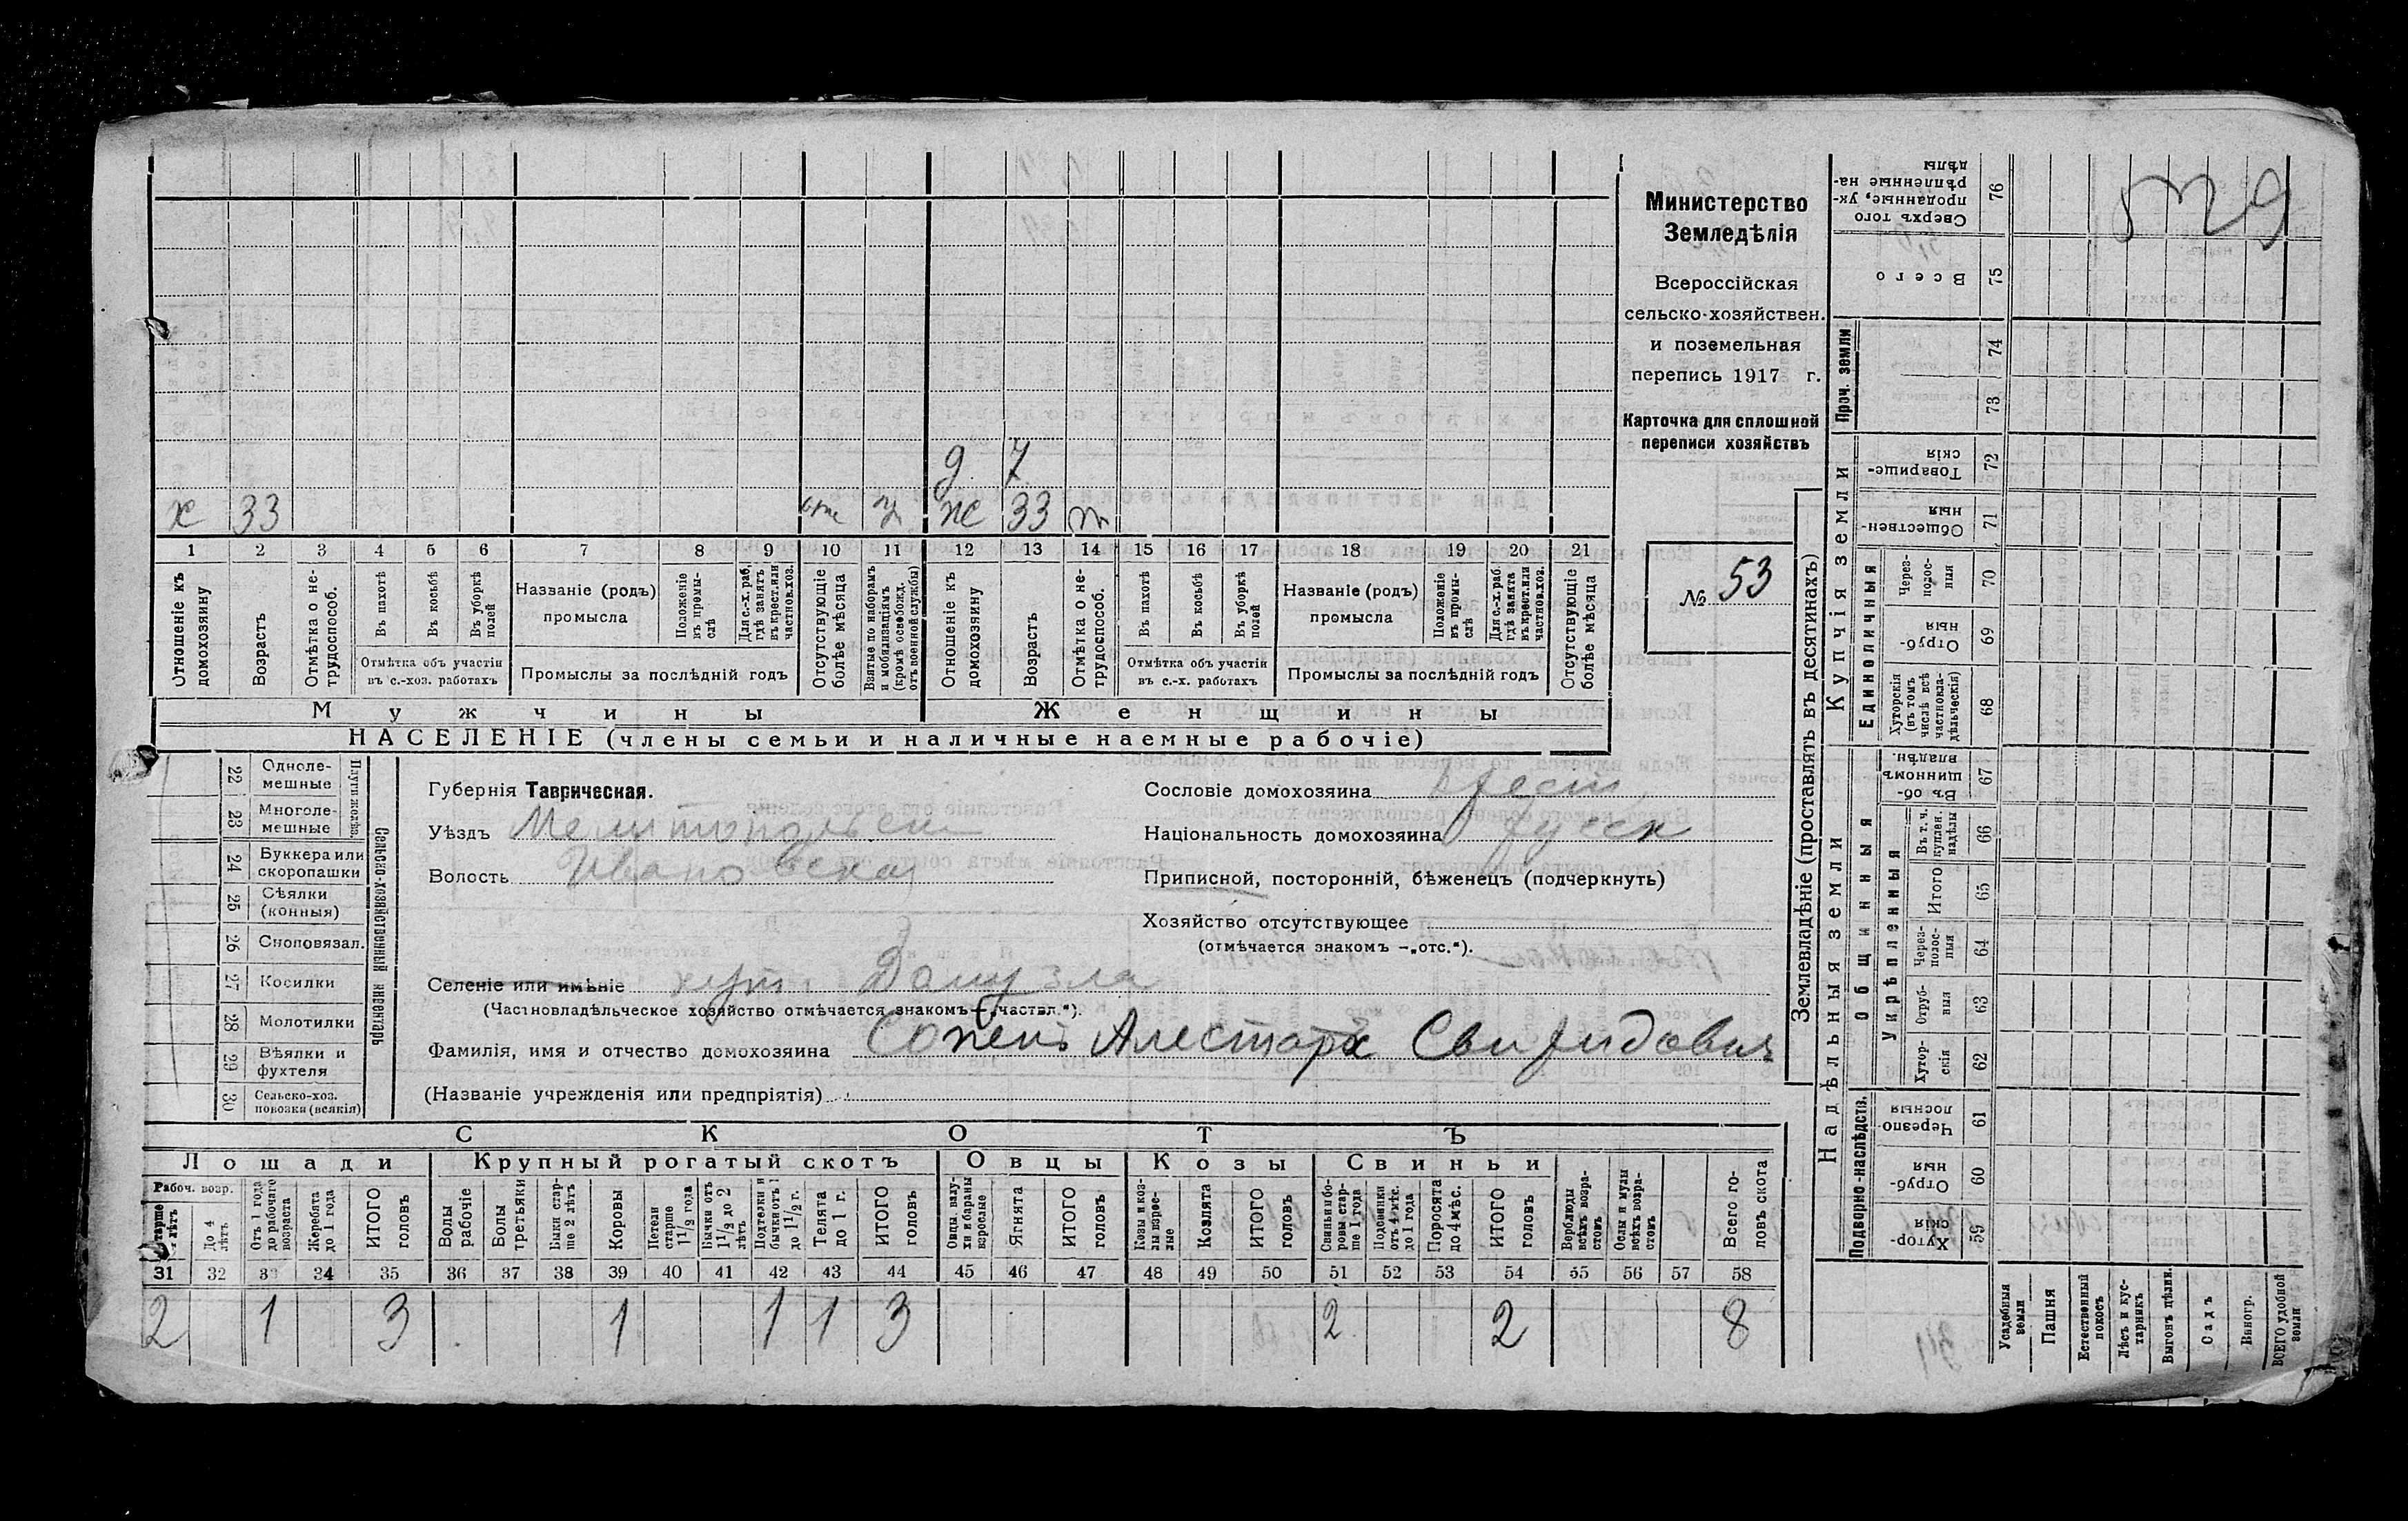 Министерство
Земледѣлія
Всероссійская
сельско-хозяйствен.
и поземельная
перепись 1917 г.
Карточка для сплошной
переписи хозяйствъ
№ 53
д. 7
х 33 отс 33 т
1 2 3 4 5 6 7 8 9 10 11 12 13 14 15 16 17 18 19 20 21
Отношеніе къ домохозяину
Возрастъ
Отмѣтка о не-трудоспособ.
Въ пахотѣ
Въ косьбѣ
Въ уборкѣ полей
Отмѣтка объ участіи въ с.-хоз. работахъ
Названіе (родъ) промысла
Положеніе въ промы-слѣ
Для с.-х. раб. гдѣ занятъ въ крест. или частнов. хоз.
Промыслы за послѣдній годъ
Отсутствующіе болѣе мѣсяца
Взятые по наборамъ и мобилизаціямъ (кромѣ освобожд. отъ военной службы)
Отношеніе къ домохозяину
Возрастъ
Отмѣтка о не-трудоспособ.
Въ пахотѣ
Въ косьбѣ
Въ уборкѣ полей
Отмѣтка объ участіи въ с.-х. работахъ
Названіе (родъ) промысла
Положеніе въ промы-слѣ
Для с.-х. раб. гдѣ занята въ крест. или частнов. хоз.
Промыслы за послѣдній годъ
Отсутствующіе болѣе мѣсяца
Мужчины Женщины
НАСЕЛЕНІЕ (члены семьи и наличные наемные рабочіе)
22 Одноле-мешные
23 Многоле-мешные
24 Буккера или скоропашки
25 Сѣялки (конныя)
26 Сноповязал.
27 Косилки
28 Молотилки
29 Вѣялки и фухтеля
30 Сельско-хоз. повозки (всякія)
Сельско-хозяйственный инвентарь
Губернія Таврическая.
Уѣздъ Мелитопольск
Волость Ивановская
Селеніе или имѣніе хут.
(Частновладѣльческое хозяйство отмѣчается знакомъ – „частвл.“).
Фамилія, имя и отчество домохозяина Свиридович
(Названіе учрежденія или предпріятія)
Сословіе домохозяина крест
Національность домохозяина русск
Приписной, посторонній, бѣженецъ (подчеркнуть)
Хозяйство отсутствующее
(отмѣчается знакомъ –„отс.“).
СКОТЪ
Лошади Крупный рогатый скотъ Овцы Козы Свиньи
Рабоч. возр.
До 4 лѣтъ
Отъ 1 года до рабочаго возраста
Жеребята до 1 года
ИТОГО головъ
Волы рабочіе
Волы третьяки
Быки стар-ше 2 лѣтъ
Коровы
Нетели старше 1 1/2 года
Бычки отъ 1 1/2 до 2 лѣтъ
Подтелки и бычки отъ 1 до 1 1/2 г.
Телята до 1 г.
ИТОГО головъ
Овцы, валу-хи и бараны взрослые
Ягнята
ИТОГО головъ
Козы и коз-лы взрос-лые
Козлята
ИТОГО головъ
Свиньи и бо-ровы стар-ше 1 года
Подсвинки отъ 4 мѣс. до 1 года
Поросята до 4 мѣс.
ИТОГО головъ
Верблюды всѣхъ возра-стовъ
Ослы и мулы всѣхъ возра-стовъ
Всего го-ловъ скота
31 32 33 34 35 36 37 38 39 40 41 42 43 44 45 46 47 48 49 50 51 52 53 54 55 56 57 58
2 1 3 1 1 1 3 2 2 8
Землевладѣніе (проставлять въ десятинахъ)
Надѣльныя земли Купчія земли Проч. земли
Подворно-наслѣдств.
Общинныя
Укрѣпленныя
Единоличныя
76 Сверхъ того проданные, ук-рѣпленные на-дѣлы
75 Всего
74
73
72 Товарище-скія
71 Обществен-ныя
70 Через-полос-ныя
69 Отруб-ныя
68 Хуторскія (въ томъ числѣ всѣ частновла-дѣльческія)
67 Въ об-щинномъ владѣн.
66 Въ т. ч. куплен. надѣлы
65 Итого
64 Через-полос-ныя
63 Отруб-ныя
62 Хутор-скія
61 Черезпо-лосныя
60 Отруб-ныя
59 Хутор-скія
Усадебныя земли
Пашня
Естественный покосъ
Лѣсъ и кус-тарникъ
Выгонъ цѣлин.
Садъ
Виногр.
ВСЕГО удобной земли